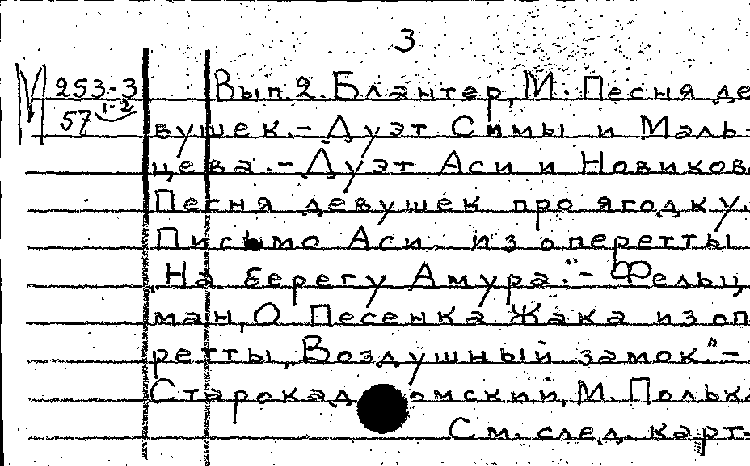 3
М 253-3 Вып. 2. Блантер, М. Песня де
57 1-2 вушек. – Дуэт Симы и Маль-
цева. – Дуэт Аси и Новикова
Песня девушек про ягодку.
Письмо Аси из оперетты
„На берегу Амура." – Фельц
ман, О Песенка Жака из оп
ретты „Воздушный замок" –
Старокадомский, М. Полька
См. след. карт.